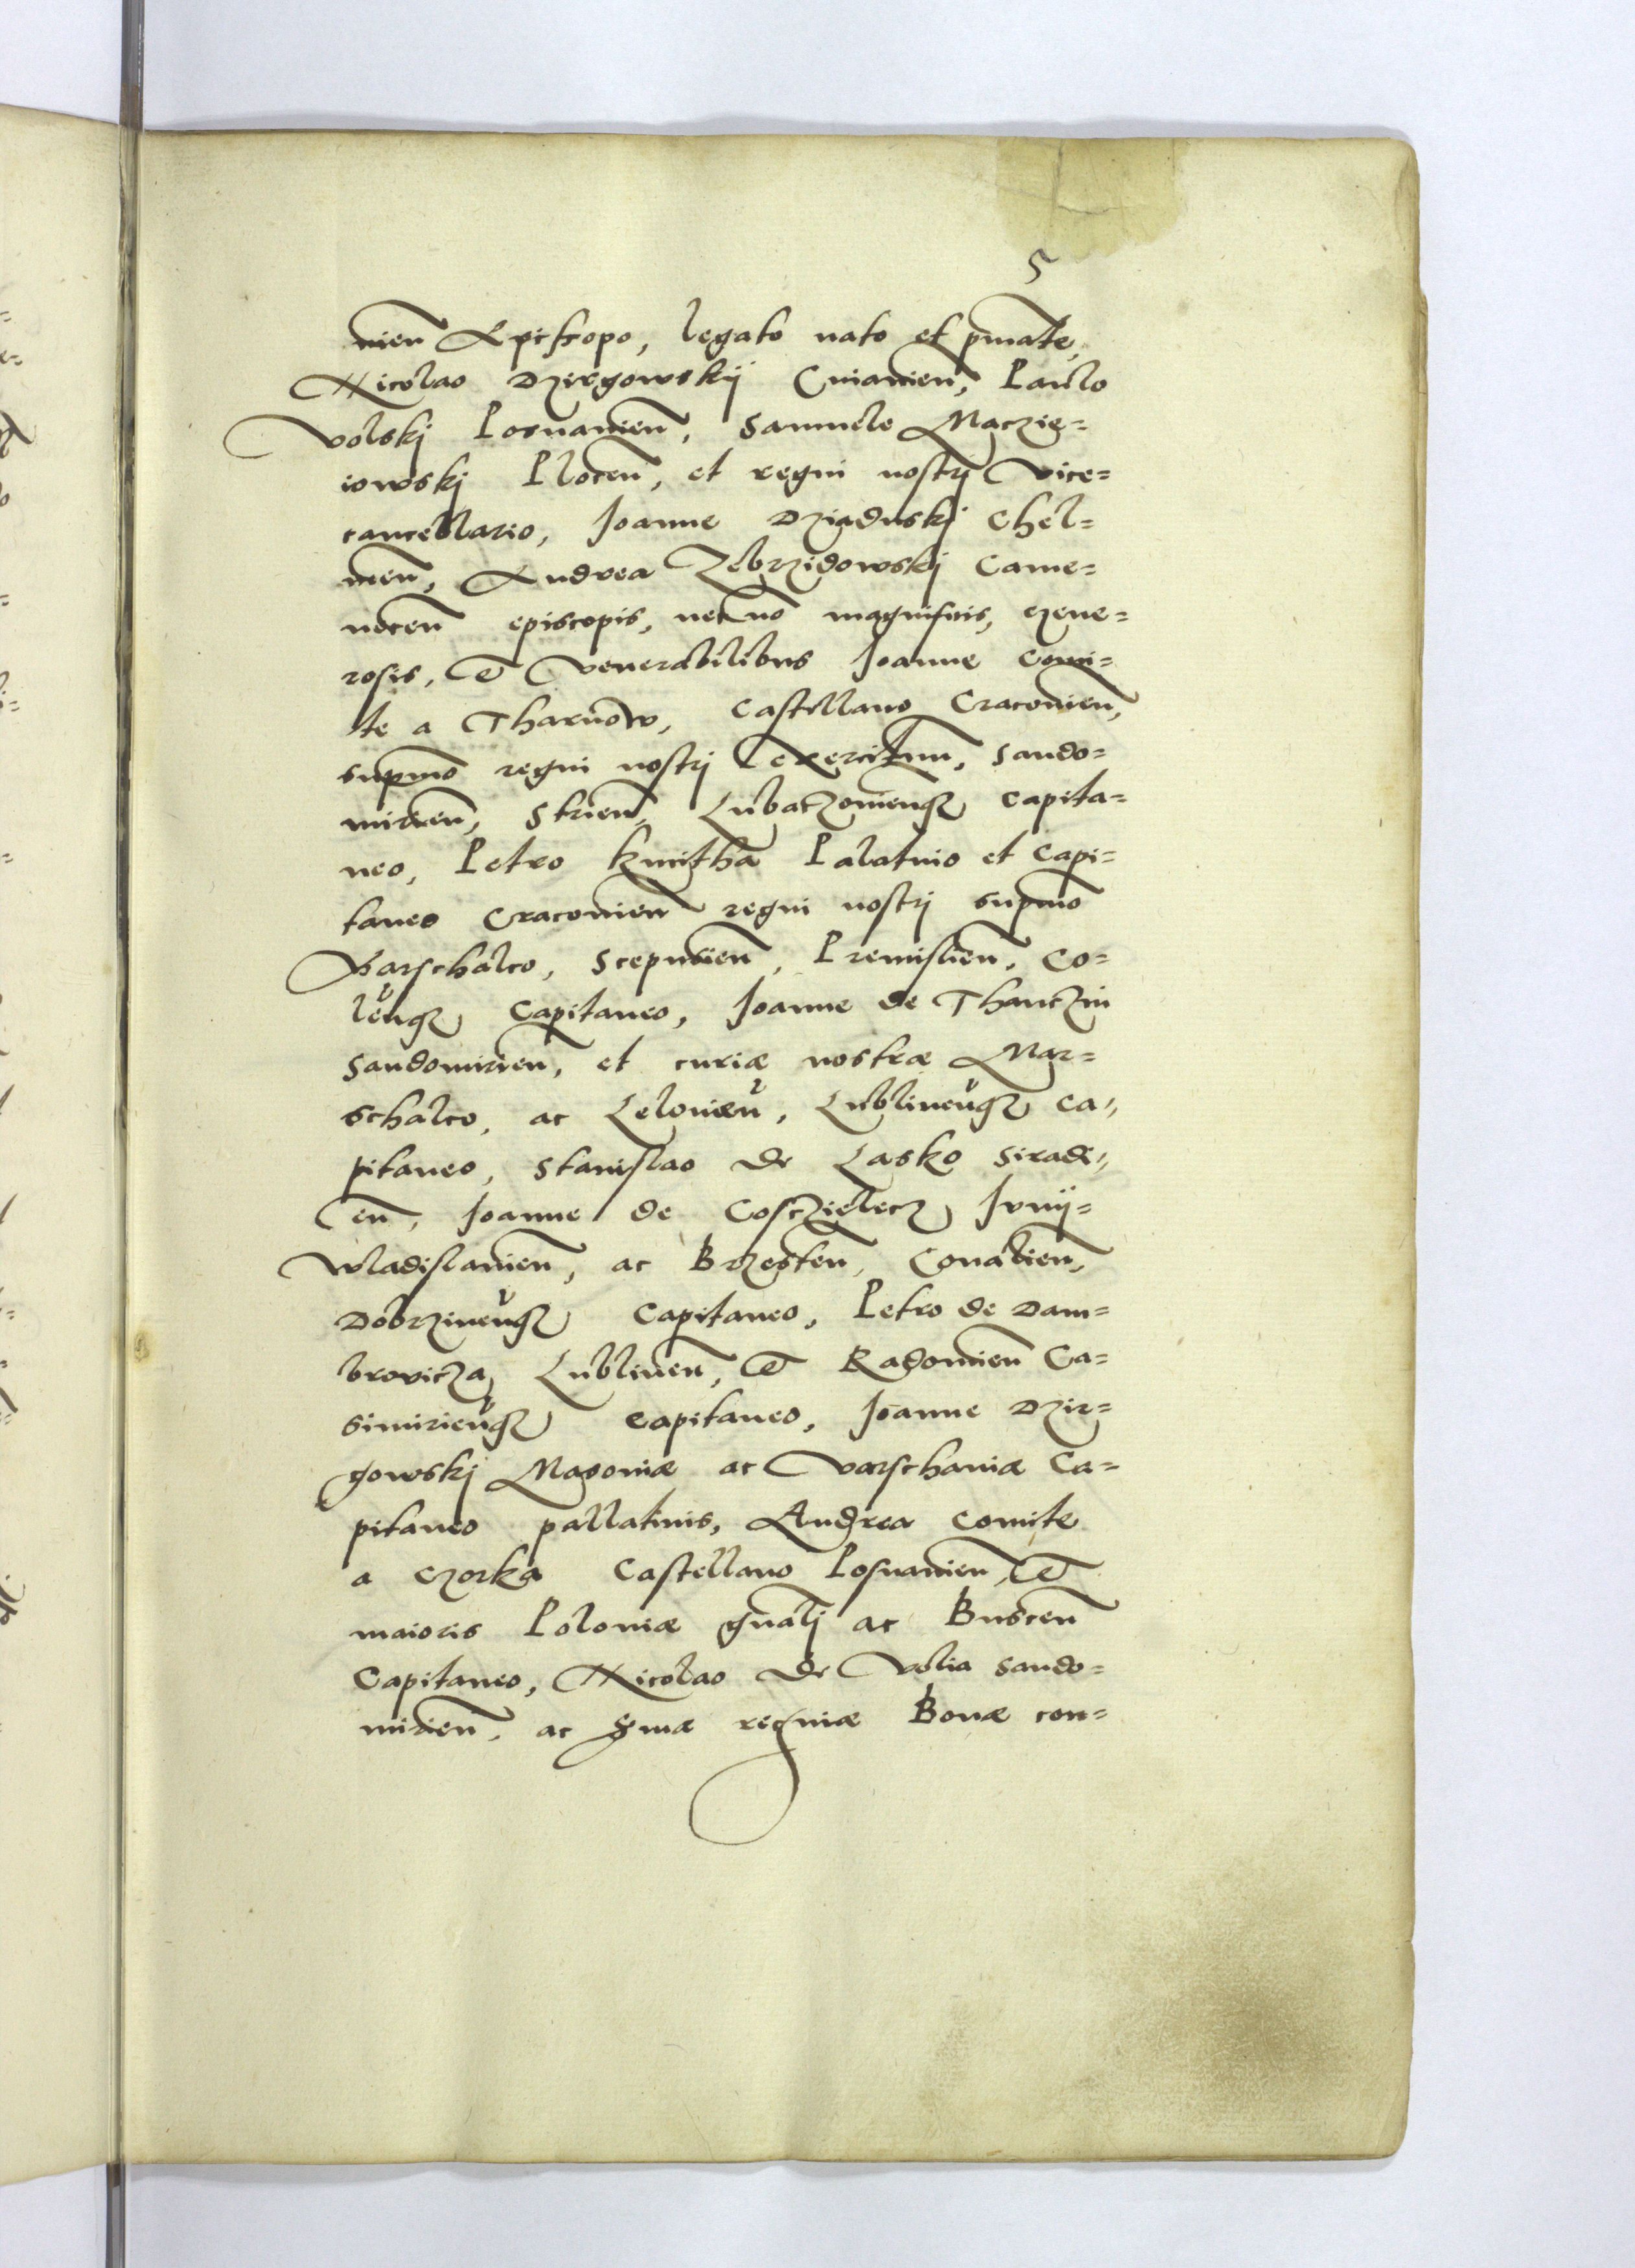 5
nien̄ Archiepiscopo, legato nato et pm̄ate,
Nicolao Dzirgowskij Cuiauien̄, Paulo
Volskj Posnanien̄, Samuele Maczie=
iowskj Plocen̄, et regni nostrj Vice=
cancellario, Joanne Dziaduskj Chel=
men̄, Andrea Zebrzidowskj Came=
necen̄ episcopis, necno magnificis, gene=
rosis, et Venerabilibus Joanne Comi=
te a Tharnow, Castellano Cracouien̄,
supm̄o regni nostrj exercituum, Sando=
mirien̄, Strien̄, Lubaczouienq3 Capita=
neo, Petro Kmitha Palatino et Capi=
taneo Cracouien̄ regni nostrj supm̄o
Marschalco, Scepusien̄, Premislien̄, Co=
len̄q3 Capitaneo, Joanne de Thanczin
Sandomirien̄, et curiæ nostræ Mar=
schalco, ac Lelouien̄, Lublinen̄q3 Ca=
pitaneo, Stanislao de Lasko Siradi=
en̄, Joanne de Cosczielecz Jvnij=
wladislauien̄, ac Brzesten̄, Conatien̄,
Dobrzinen̄q3 Capitaneo, Petro de Dam=
brovicza Lublinen̄, et Radomien̄ Ca=
simirien̄q3 Capitaneo, Joanne Dzir=
gowskj Masoniæ ac Varschaniæ Ca=
pitaneo pallatinis, Andrea Comite
a Gzorka Castellano Posnanien̄, et
maioris Poloniæ gn̄alj ac Buscen̄
Capitaneo, Nicolao de Volia Sando=
mirien̄, ac Sermæ reginæ Bonæ con=